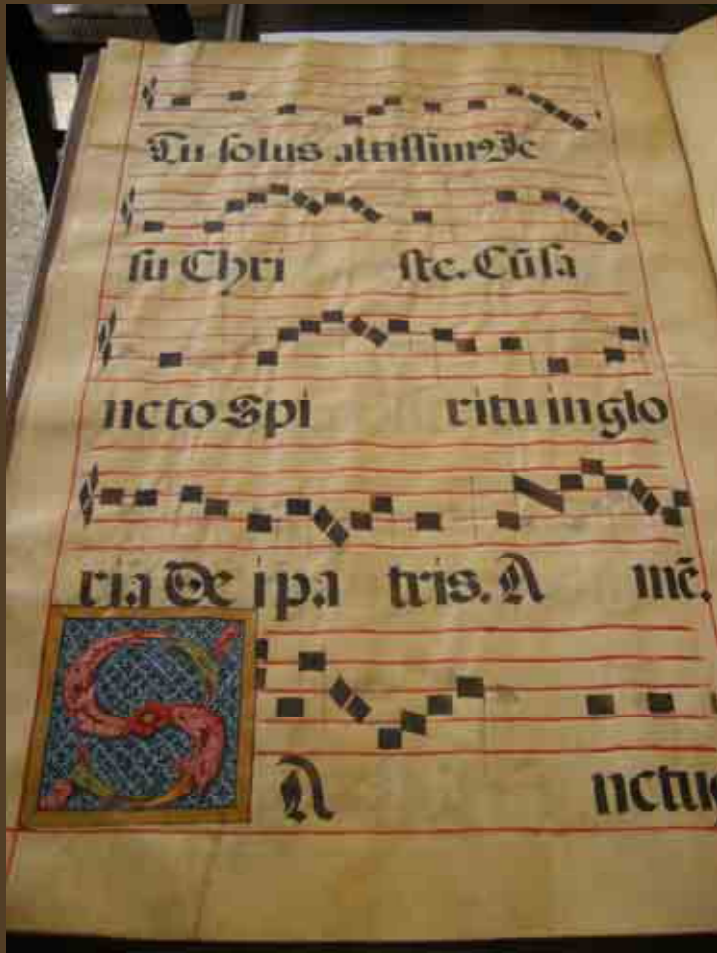 Tu solus altissimꝰ Je
su Chri ste. Cū sa
ncto Spi ritu in glo
ria De i pa tris. A mē.
SA nctu